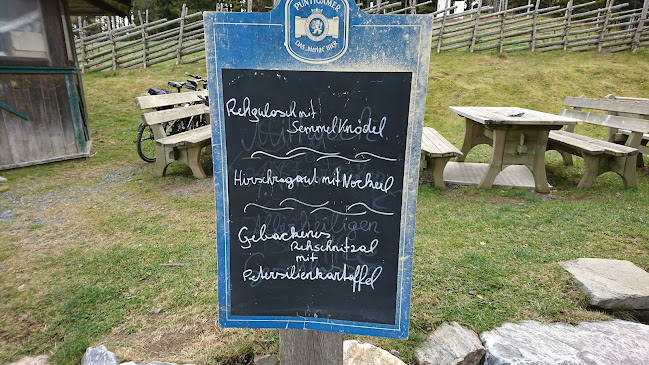 PUNTIGAMER
DAS „bierige" BIER
Rehgulasch mit
Semmelknödel
Hirschragout mit Nockerl
Gebackenes
Rehschnitzal
mit
Petersilienkartoffel